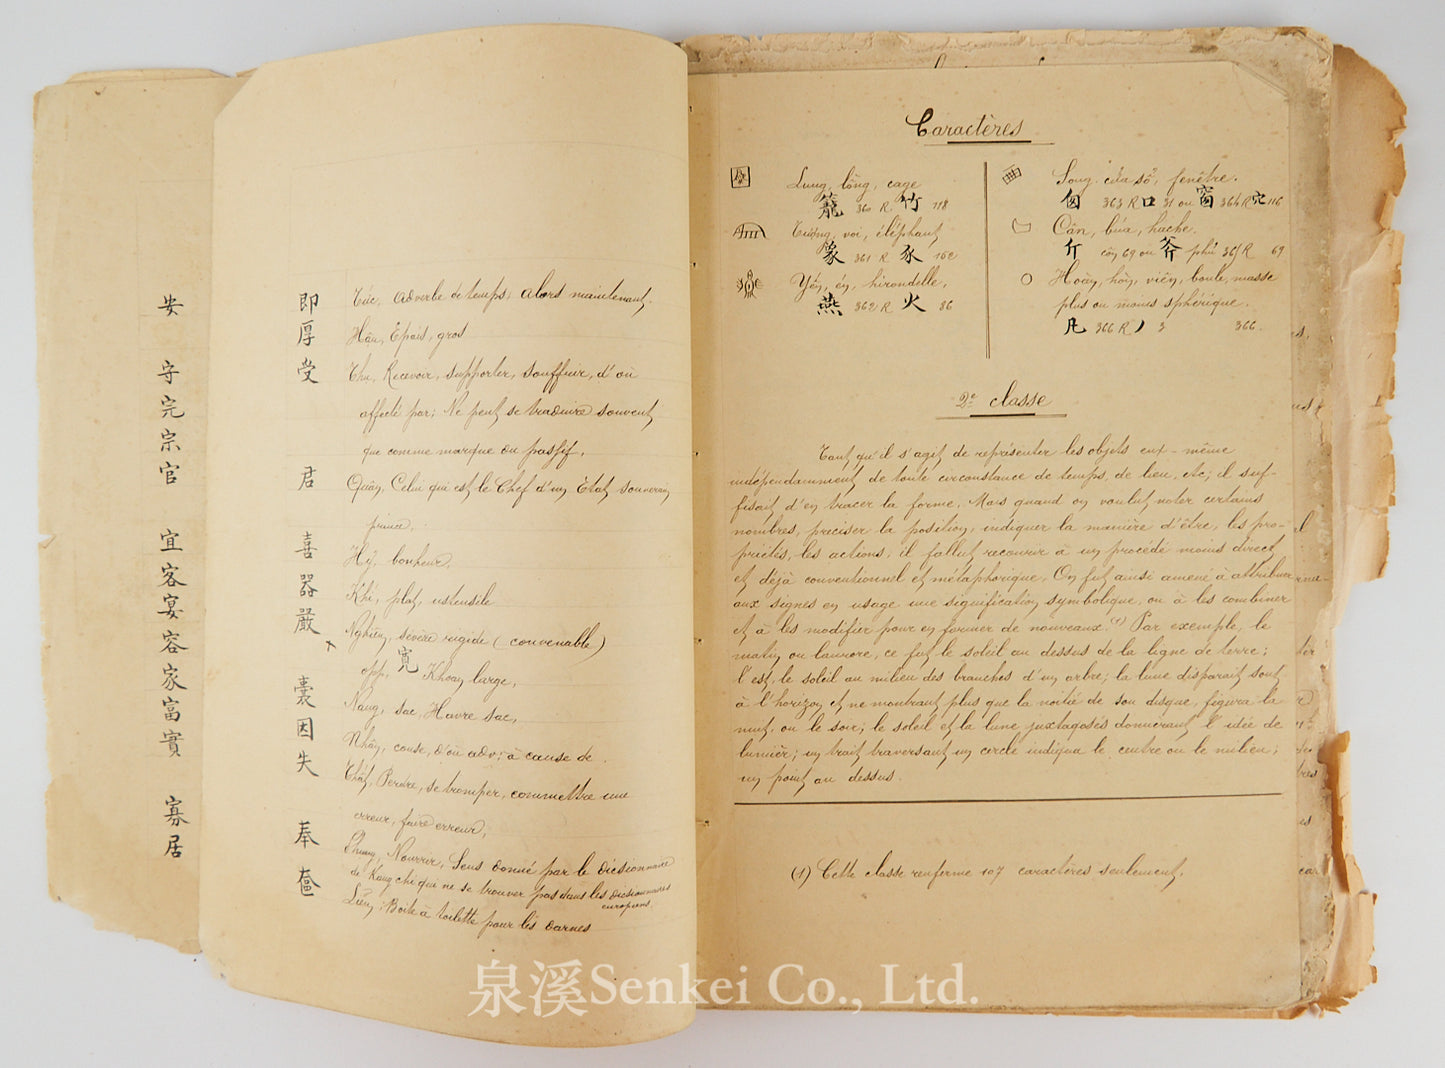 安
守
完
宗
官
宜
客
宴
容
家
富
實
寡
居
即 Tức, Adverbe de temps; alors maintenant.
厚 Hậu, Epais, gros
受 Thu, Recevoir, supporter, souffrir, d'où
affecté par; Ne peut se traduire souvent
que comme marque du passif.
君 Quân, Celui qui est le Chef d'un Etat souverain
prince,
喜 Hỷ, bonheur,
器 Khí, plat, ustensile
嚴 Nghiêm, sévère rigide (convenable)
opp. 寬 Khoan large,
囊 Nang, sac, Havre sac,
因 Nhân, cause, d'où adv; à cause de.
失 Thất, Perdre, se tromper, commettre une
erreur, faire erreur,
奉 Phụng, Nourrir, Sens donné par le dictionnaire
de Kang chi que ne se trouver pas dans les dictionnaires
europiens.
奩 Liêm, Boîte à toilette pour les dames
Caractères
Lung, lồng, cage
籠 360 R 竹 118
Tượng, voi, éléphant,
象 361 R 豕 152
Yến, én, hirondelle,
燕 362 R 火 86
Song. cửa sổ, fenêtre.
囱 363 R 口 31 ou 窗 364 R 穴 116
Cân, búa, hache.
斤 cân 69 ou 斧 phủ R 69
Hoàn, hòn, viên, boule, masse
plus ou moins sphérique.
凡 366 R 丿 3 366.
2e classe
Tant qu'il s'agit de représenter les objets eux-même
indépendamment de toute circonstance de temps, de lieu, etc; il suf-
fisait d'en tracer la forme. Mais quand on voulut noter certains
nombres, préciser la position, indiquer la manière d'être, les pro-
priétés, les actions, il fallut recourir à un procédé moins direct
et déjà conventionnel et métaphorique. On fut ainsi amené à attribuer
aux signes en usage une signification symbolique, ou à les combiner
et à les modifier pour en former de nouveaux. (1) Par exemple, le
matin ou l'aurore, ce fut le soleil au dessus de la ligne de terre;
l'est, le soleil au milieu des branches d'un arbre; la lune disparait sont
à l'horizon et ne montrant plus que la moitié de son disque, figura la
nuit, ou le soir; le soleil et la lune juxtaposés donnèrent l'idée de
lumière; un trait traversant un cercle indiqua le centre ou le milieu;
un point au dessus.
(1) Cette classe renferme 107 caractères seulement.
泉溪Senkei Co., Ltd.